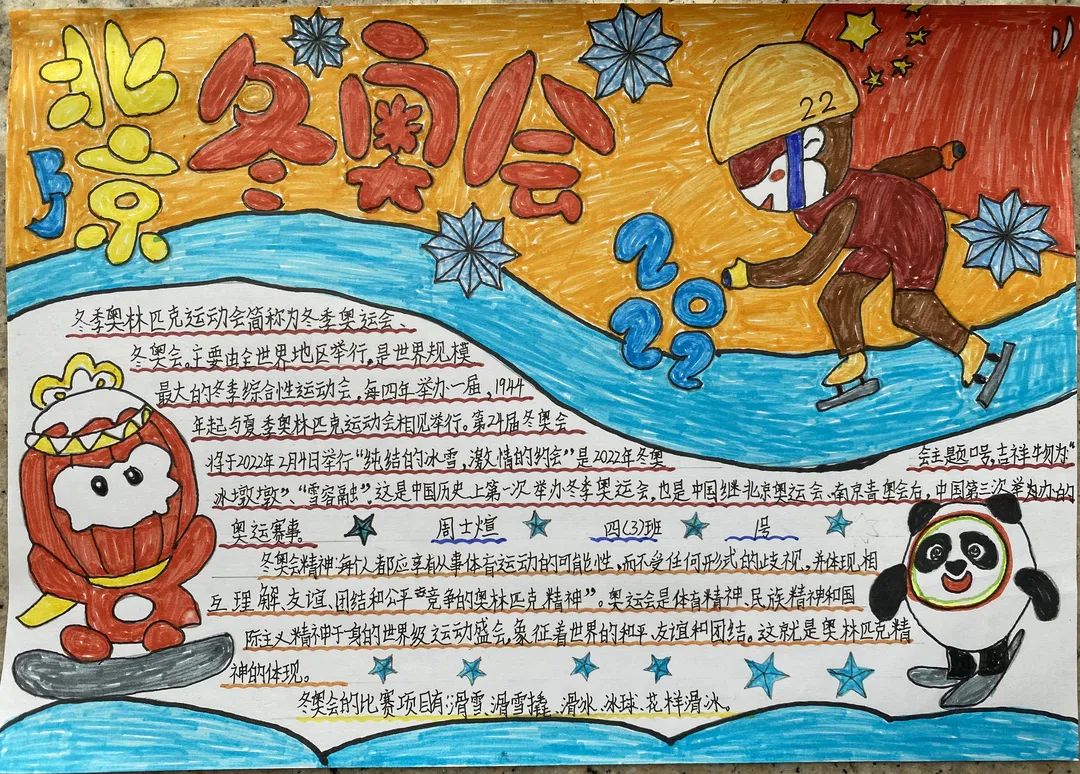 北京冬奥会
22
2022
冬季奥林匹克运动会简称为冬季奥运会、
冬奥会。主要由全世界地区举行,是世界规模
最大的冬季综合性运动会,每四年举办一届,1944
年起与夏季奥林匹克运动会相见举行。第24届冬奥会
将于2022年2月4日举行“纯结的冰雪,激情的约会”是2022年冬奥会主题口号,吉祥物为“
冰墩墩”、“雪容融”。这是中国历史上第一次举办冬季奥运会,也是中国继北京奥运会、南京青奥会后,中国第三次举办的
奥运赛事。 周士煊 四(3)班 1号
冬奥会精神:每个人都应享有从事体育运动的可能性,而不受任何形式的歧视,并体现相
互理解、友谊、团结和公平竞争的奥林匹克精神”。奥运会是体育精神、民族精神和国
际主义精神于一身的世界级运动盛会,象征着世界的和平、友谊和团结。这就是奥林匹克精
神的体现。
冬奥会的比赛项目有:滑雪、滑雪撬、滑冰、冰球、花样滑冰。